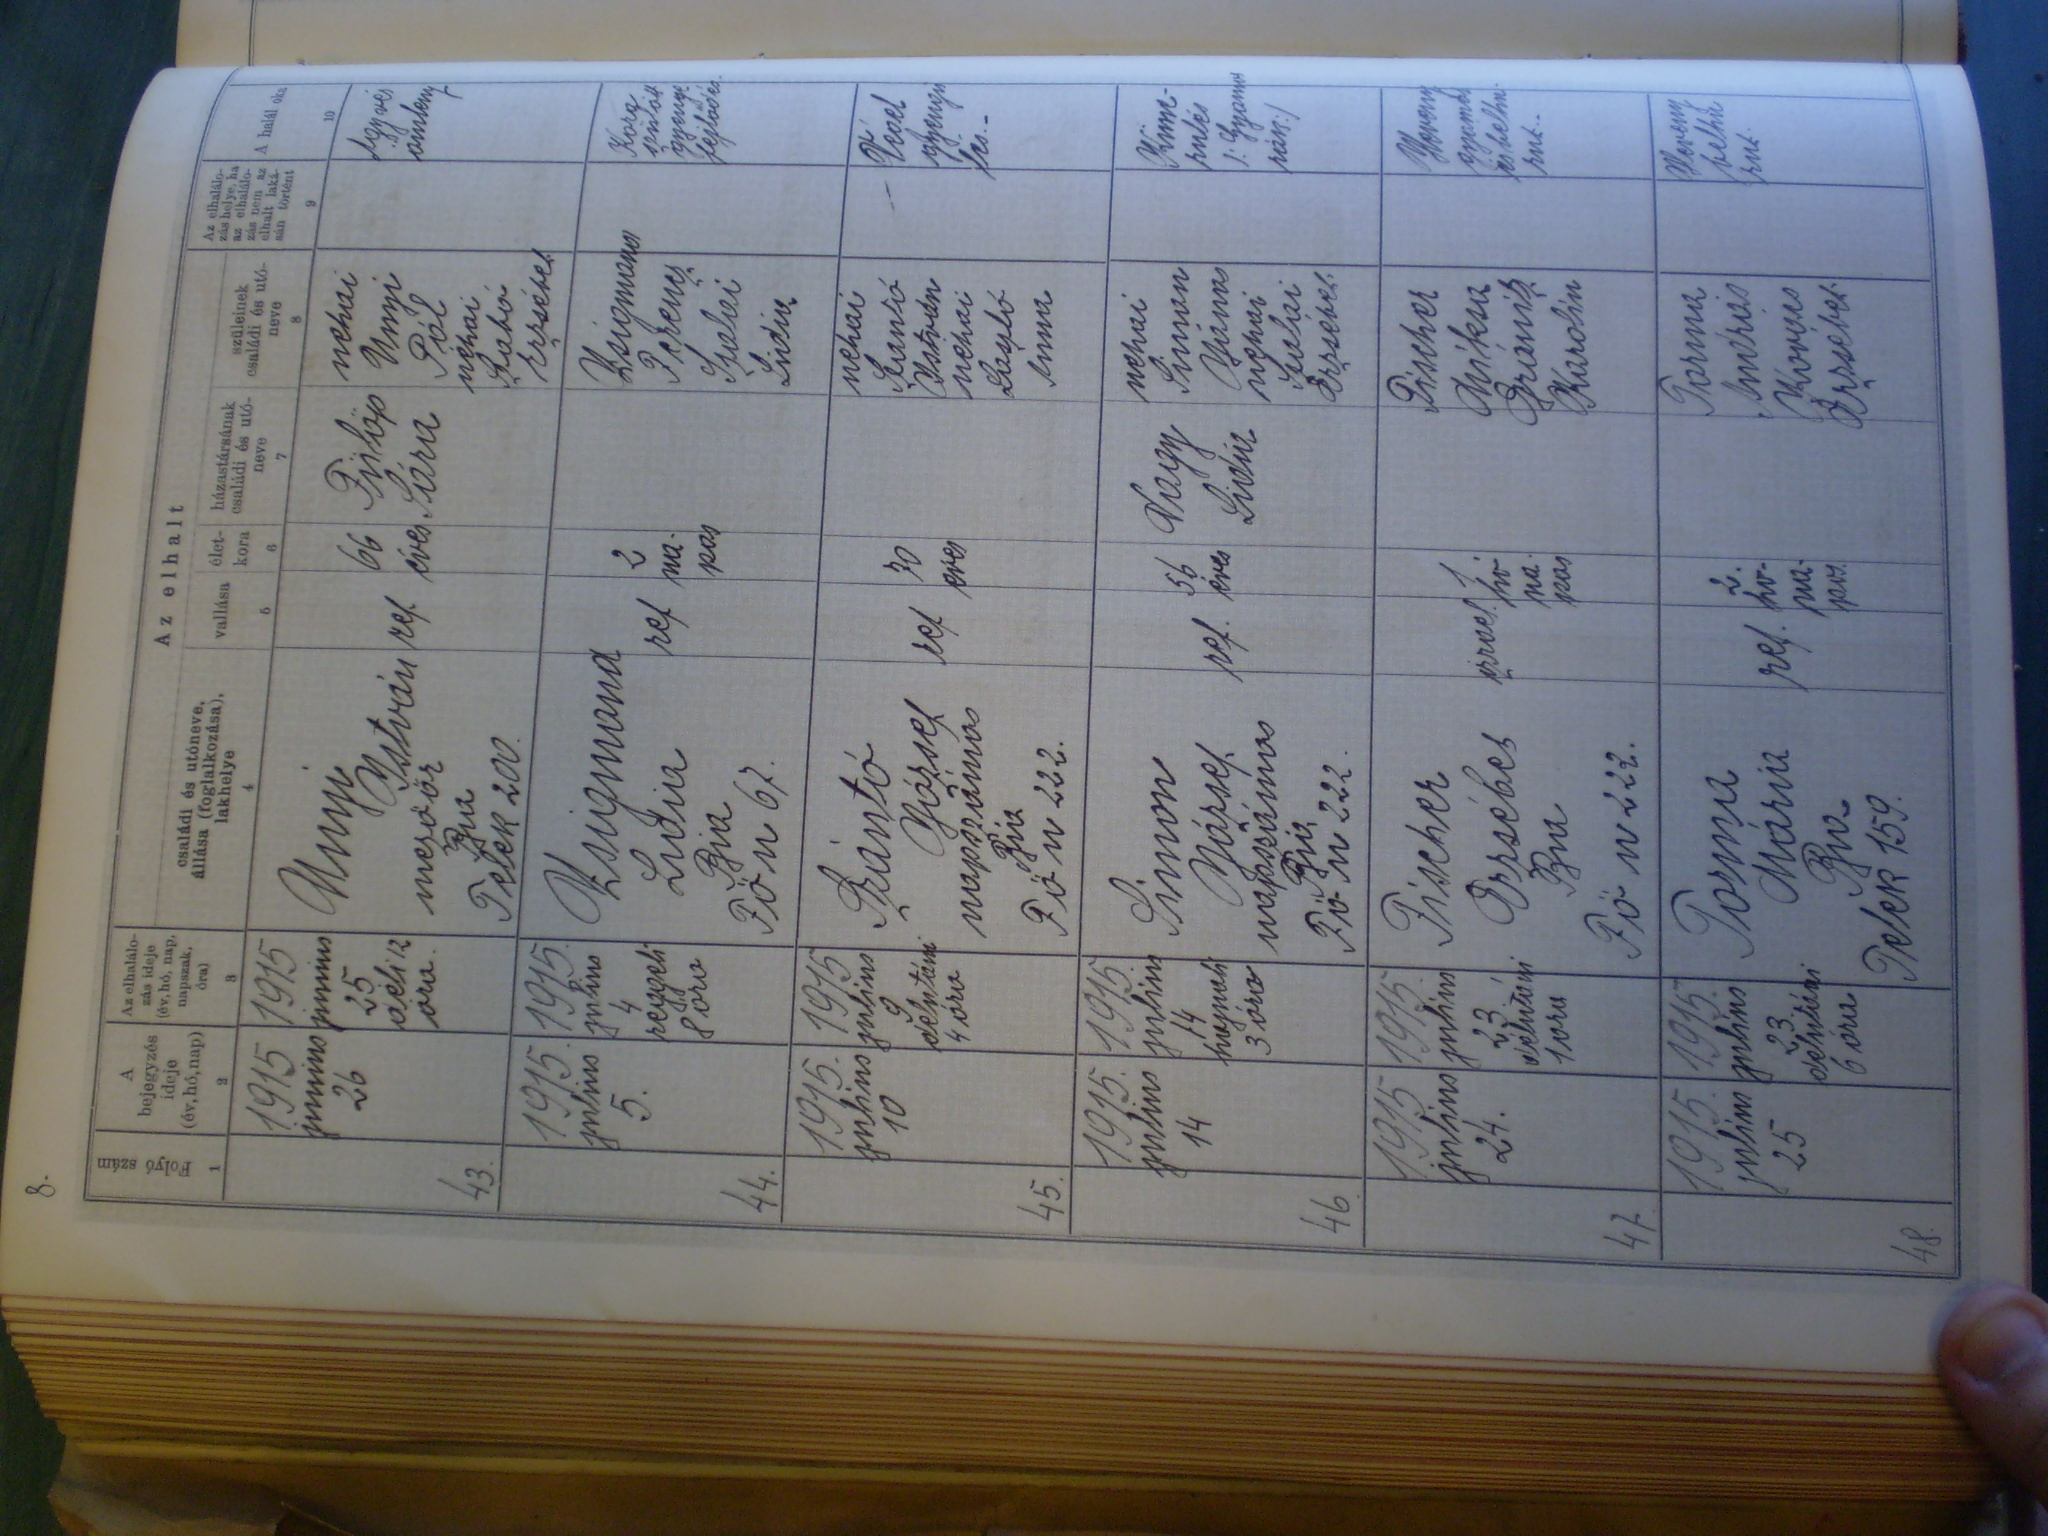 8.
Az elhalt
Folyó szám
A bejegyzés ideje (év, hó, nap)
Az elhalálo-
zás ideje
(év, hó, nap,
napszak,
óra)
családi és utóneve,
állása (foglalkozása),
lakhelye
vallása
élet-
kora
házastársának
családi és utó-
neve
szüleinek
családi és utó-
neve
Az elhalálo-
zás helye, ha
az elhalálo-
zás nem az
elhalt laká-
sán történt
A halál oka
1
2
3
4
5
6
7
8
9
10
43.
1915
junius
26
1915
junius
25
déli 12
óra.
Unyi
István
mezőőr
Bia
Telek 200.
ref
66
éves
Fülöp
Sára
néhai
Unyi
Pál
néhai
Szabó
Erzsébet
Agyvér
ömleny
44.
1915.
julius
5.
1915.
julius
4
reggeli
8 óra
Zsigmond
Lidia
Bia
Fő u 67.
ref
2
na-
pos
Zsigmond
Ferencz
Szalai
Lidia
Kora
szülött
gyenge
fejlődés.
45.
1915.
julius
10
1915
julius
9
délutáni
4 óra
Szántó
József
napszámos
Bia
Fő u 222.
ref
70
éves
néhai
Szántó
István
néhai
László
Anna
—
46.
1915.
julius
14
1915.
julius
14
hajnali
3 óra
Simon
József
napszámos
Bia
Fő u 222.
ref.
56
éves
Nagy
Lidia
néhai
Simon
János
néhai
Szalai
Erzsébet
Kime-
rülés
47.
1915
julius
24.
1915.
julius
23
délutáni
1 óra
Fischer
Erzsébet
Bia
Fő u 222.
izrael.
1
hó-
na-
pos
Fischer
Miksa
Karolin
Heveny
gyomor
és bélhu-
rut.
48.
1915.
julius
25
1915.
julius
23.
délutáni
6 óra
Torma
Mária
Bia
Telek 159.
ref.
2.
hó-
na-
pos.
Torma
András
Kovács
Erzsébet
Heveny
bélhu
rut.